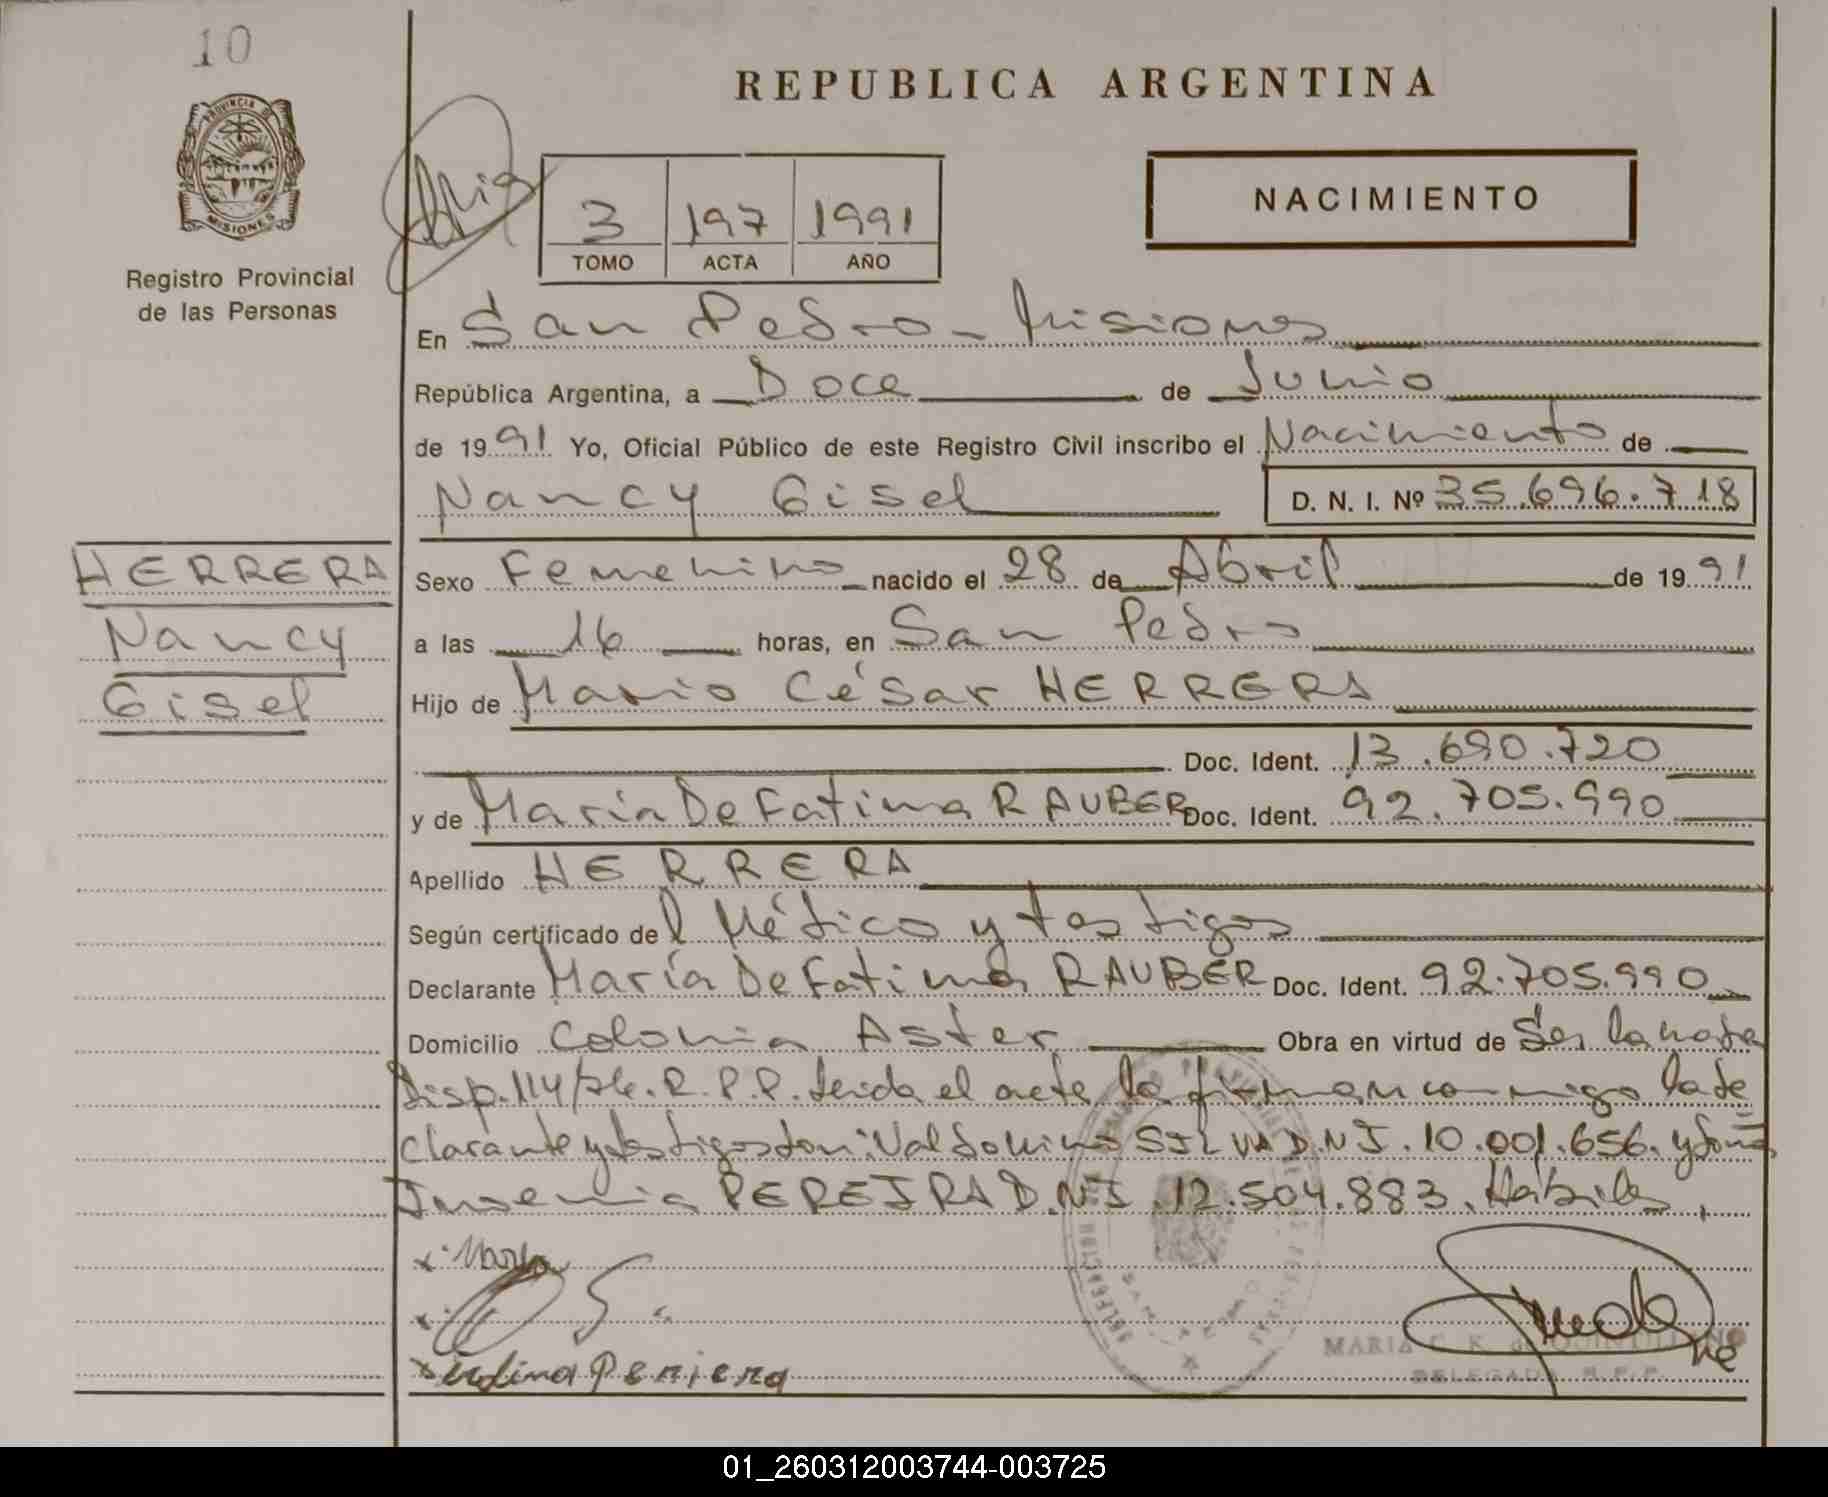 10
PROVINCIA DE
MISIONES
Registro Provincial
de las Personas
REPUBLICA ARGENTINA
NACIMIENTO
3 197 1991
TOMO ACTA AÑO
En San Pedro - Misiones
República Argentina, a Doce de Junio
de 1991 Yo, Oficial Público de este Registro Civil inscribo el Nacimiento de
Nancy Gisel D. N. I. Nº 35.696.718
HERRERA
Nancy
Gisel
Sexo Femenino nacido el 28 de Abril de 1991
a las 16 horas, en San Pedro
Hijo de Mario César HERRERA
Doc. Ident. 13.690.720
y de María De Fatima RAUBER Doc. Ident. 92.705.990
Apellido HERRERA
Según certificado del Médico y testigos
Declarante María De Fatima RAUBER Doc. Ident. 92.705.990
Domicilio Colonia Aster Obra en virtud de Ser la madre
Disp. 114/76. R.P.P. leida el acta la firman conmigo la de
clarante y testigos don: Valdomino SILVA D.N.I. 10.001.656. y doña
PEREIRA D.N.I. 12.504.883. Hábiles.
x. Maria
x.
x Pereira
DELEGACION
SAN PEDRO
MARIA C. K. de QUINTILIANO
DELEGADA R.P.P.
01_260312003744-003725